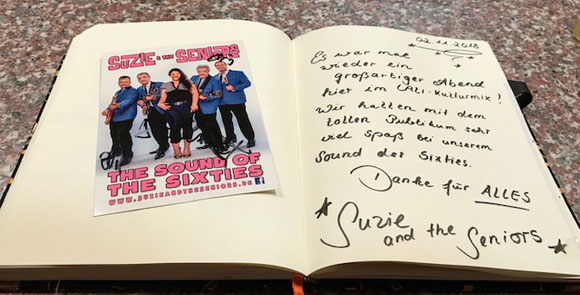 SUZIE & THE SENIORS
THE SOUND OF
THE SIXTIES
WWW.SUZIEANDTHESENIORS.DE
02.11.2018
Es war mal
wieder ein
großartiger Abend
hier im Uli-Kulturmix!
Wir hatten mit dem
tollen Publikum sehr
viel Spaß bei unserem
Sound der Sixties.
Danke für ALLES
Suzie
and the Seniors